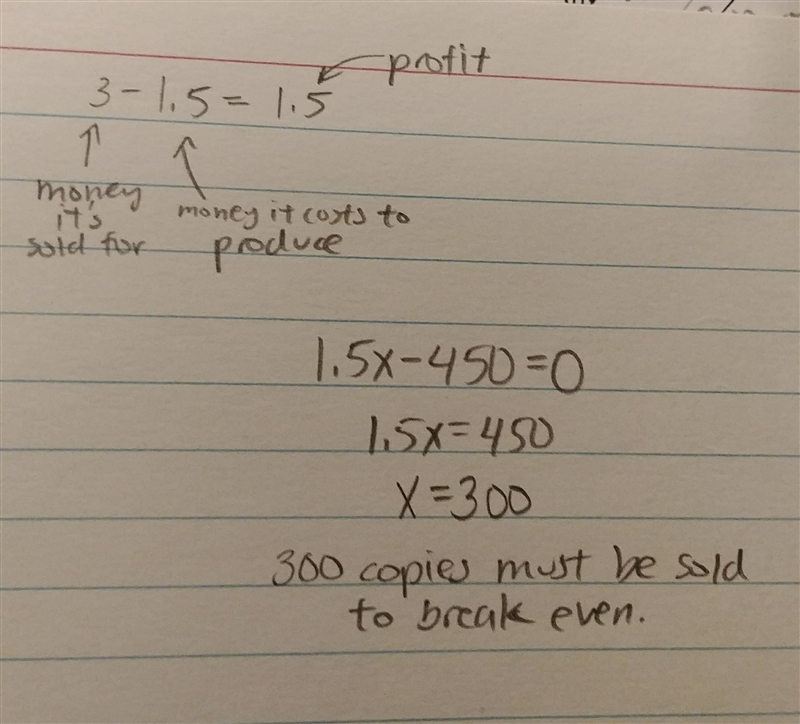 profit
3 - 1.5 = 1.5
money
it's
sold for
money it costs to
produce
1.5x - 450 = 0
1.5x = 450
x = 300
300 copies must be sold
to break even.